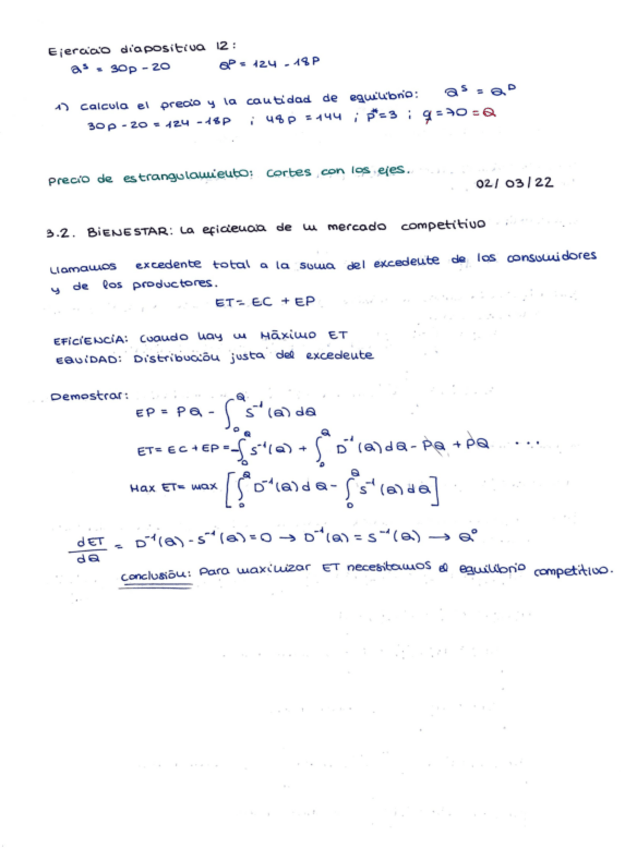 Ejercicio diapositiva 12:
Qˢ = 30p - 20 Qᴰ = 124 - 18P
1) calcula el precio y la cantidad de equilibrio: Qˢ = Qᴰ
30p - 20 = 124 - 18P ; 48p = 144 ; p* = 3 ; q = 70 = Q
Precio de estrangulamiento: cortes con los ejes.
02/03/22
3.2. BIENESTAR: La eficiencia de un mercado competitivo
Llamamos excedente total a la suma del excedente de los consumidores
y de los productores.
ET = EC + EP
EFICIENCIA: Cuando hay un Máximo ET
EQUIDAD: Distribución justa del excedente
Demostrar:
EP = PQ - ∫₀^Q S⁻¹(Q) dQ
ET = EC + EP = -∫₀^Q S⁻¹(Q) + ∫₀^Q D⁻¹(Q) dQ - PQ + PQ ...
Max ET = max [∫₀^Q D⁻¹(Q) dQ - ∫₀^Q S⁻¹(Q) dQ]
dET/dQ = D⁻¹(Q) - S⁻¹(Q) = 0 → D⁻¹(Q) = S⁻¹(Q) → Q⁰
Conclusión: Para maximizar ET necesitamos el equilibrio competitivo.